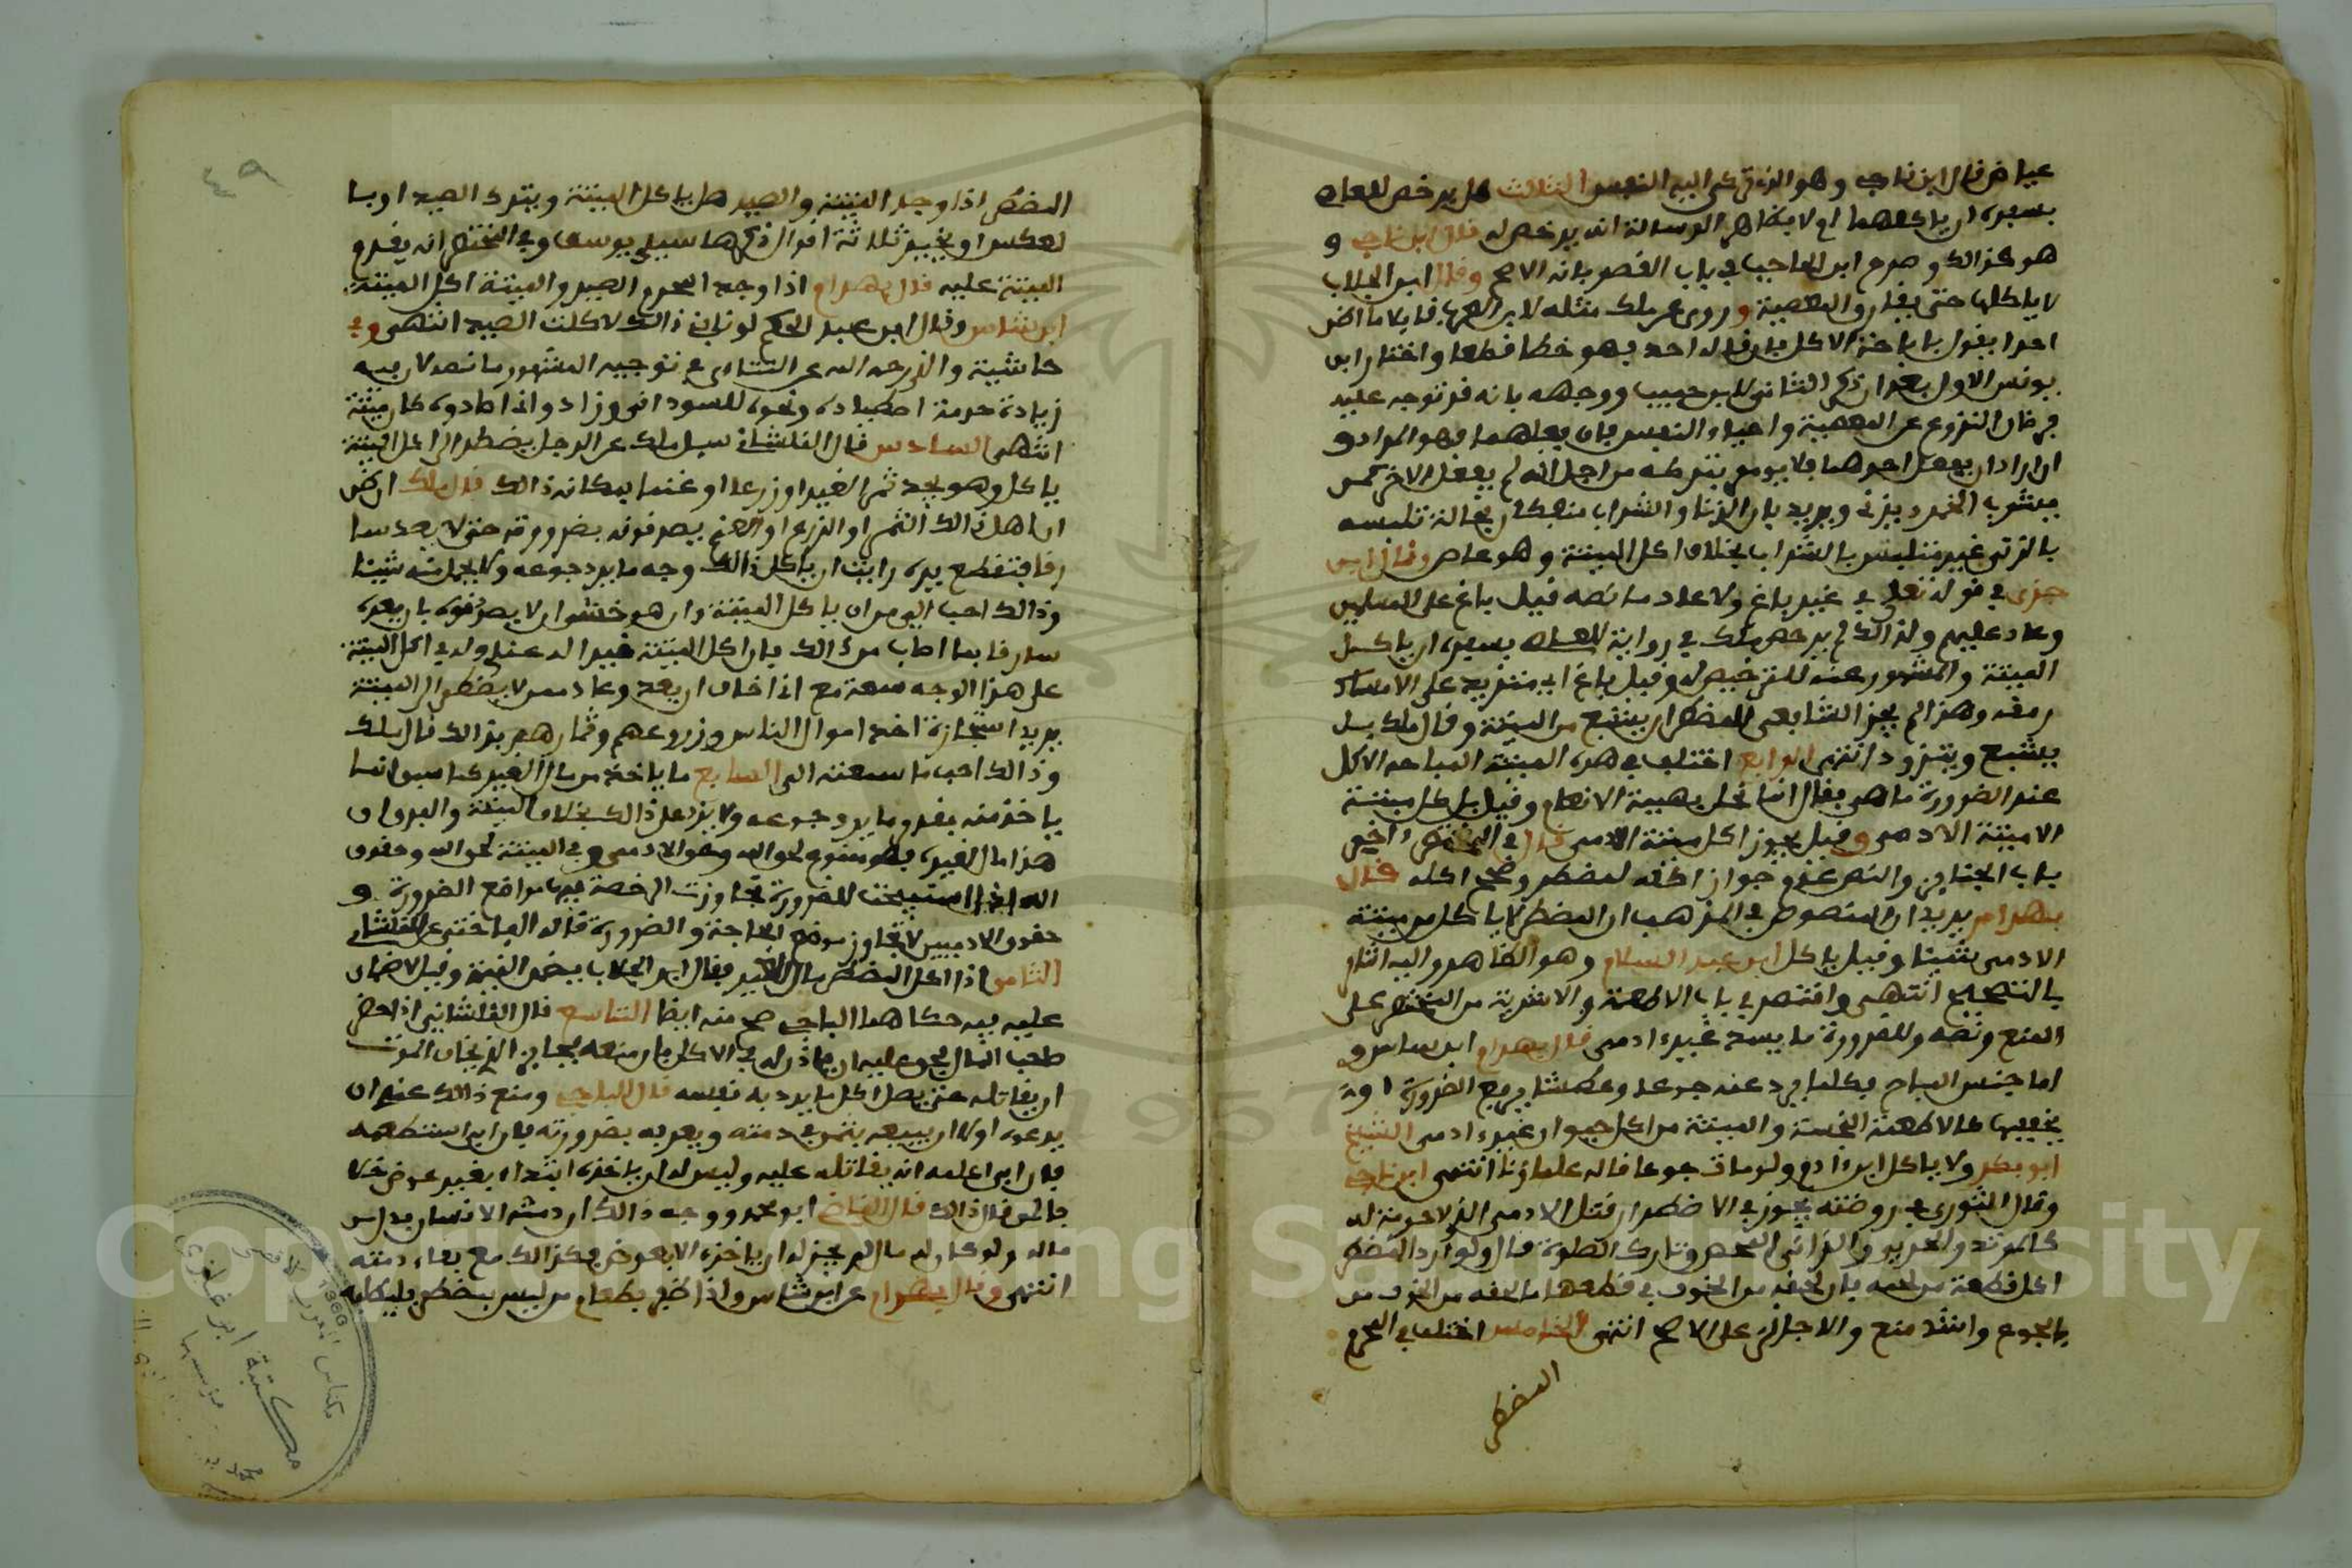 عياض قال ابن ناجي وهو الذي في البيع النفيس الثالث هل يرخص للعاصي
بسفره ان ياكلها ام لا بظاهر الرسالة انه يرخص له قال ابن ناجي و
هو كذالك وصرح ابن الحاجب في باب القصر بانه الاصح وقال ابن الجلاب
لا ياكلها حتى يفارق المعصية وروى عن ملك مثله لابن العربي فايلا ما اظن
احدا يقول باباحة الاكل فان قاله احد فهو خطا قطعا واختار ابن
يونس الاول بعد ان ذكر الثاني لابن حبيب ووجهه بانه قد توجه عليه
فرضان النزوع عن المعصية واحياء النفس فان فعلهما فهو المراد و
ان اراد ان يفعل احدهما فلا يومر بتركه من اجل انه لم يفعل الاخر كمن
يشرب الخمر ويزني ويريد
بالزنى غير متلبس بالشراب بخلاف اكل الميتة وهو عاص وقال ابن
جزي في قوله تعلى غير باغ ولا عاد ما نصه قيل باغ على المسلمين
وعاد عليهم ولذالك لم يرخص ملك في رواية للعاصي بسفره ان ياكل
الميتة والمشهور عنه الترخيص له وقيل باغ اي متزيد على الامساك
رمقه وهذا لم يجز الشافعي للمضطر ان يشبع من الميتة وقال ملك بل
يشبع ويتزود انتهى الرابع اختلف في هذه الميتة المباحة الاكل
عند الضرورة ما هي فقال انما تحل بهيمة الانعام وقيل بل كل ميتة
الا ميتة الادمي وقيل يجوز اكل ميتة الادمي قال في المختصر اخر
باب الجنايز والنص عدم جواز اكله لمضطر وصحح اكله قال
بهرام يريد ان المنصوص في المذهب ان المضطر لا ياكل من ميتة
الادمي شيئا وقيل ياكل ابن عبد السلام وهو الظاهر واليه اشار
بالتصحيح انتهى واقتصر في باب الاطعمة والاشربة من المختصر على
المنع ونصه وللضرورة ما يسد غير ادمي قال بهرام ابن شاس و
اما جنس المباح فكلما يرد عنه جوعا وعطشا يرفع الضرورة او
يخففها كالاطعمة النجسة والميتة من كل حيوان غير ادمي الشيخ
ابو بكر ولا ياكل ابن ادم ولو مات جوعا قاله علماؤنا انتهى ابن ناجي
وقال النووي في روضته يجوز في الاضطرار قتل الادمي الذي لا حرمة له
كالمرتد والحربي والزاني المحصن وتارك الصلوة قال ولو اراد المضطر
اكل قطعة من لحمه فان لحقه من الخوف في قطعها ما لحقه من الخوف من
الجوع واشد منع والا جاز على الاصح انتهى الخامس اختلف في المحرم
المضطر
المضطر اذا وجد الميتة والصيد هل ياكل الميتة ويترك الصيد او با
لعكس او يخير ثلاثة اقوال ذكرها سيدي يوسف وفي المختصر انه يقدم
الميتة عليه قال بهرام اذا وجد المحرم الصيد والميتة اكل الميتة
ابن شاس وقال ابن عبد الحكم لو نابني ذالك لاكلت الصيد انتهى وفي
حاشية والدي رحمه الله عن التتائي في توجيه المشهور ما نصه لان فيه
زيادة حرمة اصطياده ونحوه للسوداني وزاد وان اصطادوه كان ميتة
انتهى السادس قال القلشاني سيل ملك عن الرجل يضطر الى اكل الميتة
ياكل وهو يجد ثمر الغير او زرعا او غنما بمكانه ذالك قال ملك ان ظن
ان اهل ذالك الثمر او الزرع او الغنم يصدقونه بضرورته حتى لا يعد سا
رقا فتقطع يده رايت ان ياكل ذالك وجد ما يرد جوعه ولا يحمل منه شيئا
وذالك احب الي من ان ياكل الميتة وان هو خشي ان لا يصدقوه بان يعدوه
سارقا بما اصاب من ذالك فان اكل الميتة خير له عندي وله في اكل الميتة
على هذا الوجه سعة مع اني اخاف ان يعد وعاد ممن لا يضطر الى الميتة
يريد استجازة اخذ اموال الناس وزروعهم وثمارهم بذالك قال ملك
وذالك احب ما سمعت الي السابع ما ياخذه من مال الغير كما سبق انما
ياخذ منه بقدر ما يرد جوعه ولا يزد على ذالك بخلاف الميتة والفرق ان
هذا مال الغير فهو ممنوع لحق الله وحق الادمي وفي الميتة لحق الله وحقوق
الله اذا استبيحت للضرورة تجاوزت الرخصة فيها مواضع الضرورة و
حقوق الادميين لا تجاوز موضع الحاجة والضرورة قاله الباجي نقله القلشاني
الثامن اذا اكل المضطر مال الغير فقال ابن الجلاب يضمن القيمة وقيل لا ضمان
عليه فيه حكاهما الباجي صح منه ايضا التاسع قال القلشاني اذا حضر
صاحب المال فحق عليه ان ياذن له في الاكل فان منعه فجايز للذي يخاف الموت
ان يقاتله حتى يصل اكل ما يرد به نفسه قال الباجي ومعنى ذالك عندي ان
يدعوه اولا ان يبيعه بثمن في ذمته ويعرفه بضرورته فان ابى استطعمه
فان ابى اعلمه انه يقاتله عليه وليس له ان ياخذه ابتداء بغير عوض
قال القاضي ابو محمد ووجه ذالك ان ذمة الانسان بدل من
ماله ولو كان له مال لم يجز له ان ياخذه الا بعوض فكذالك مع بقاء ذمته
انتهى وقال بهرام عن ابن شاس واذا ظفر بطعام من ليس بمضطر فليطلبه
٤٩
مكتبة ابن غازي
1960
Copyright King Saud University
1957